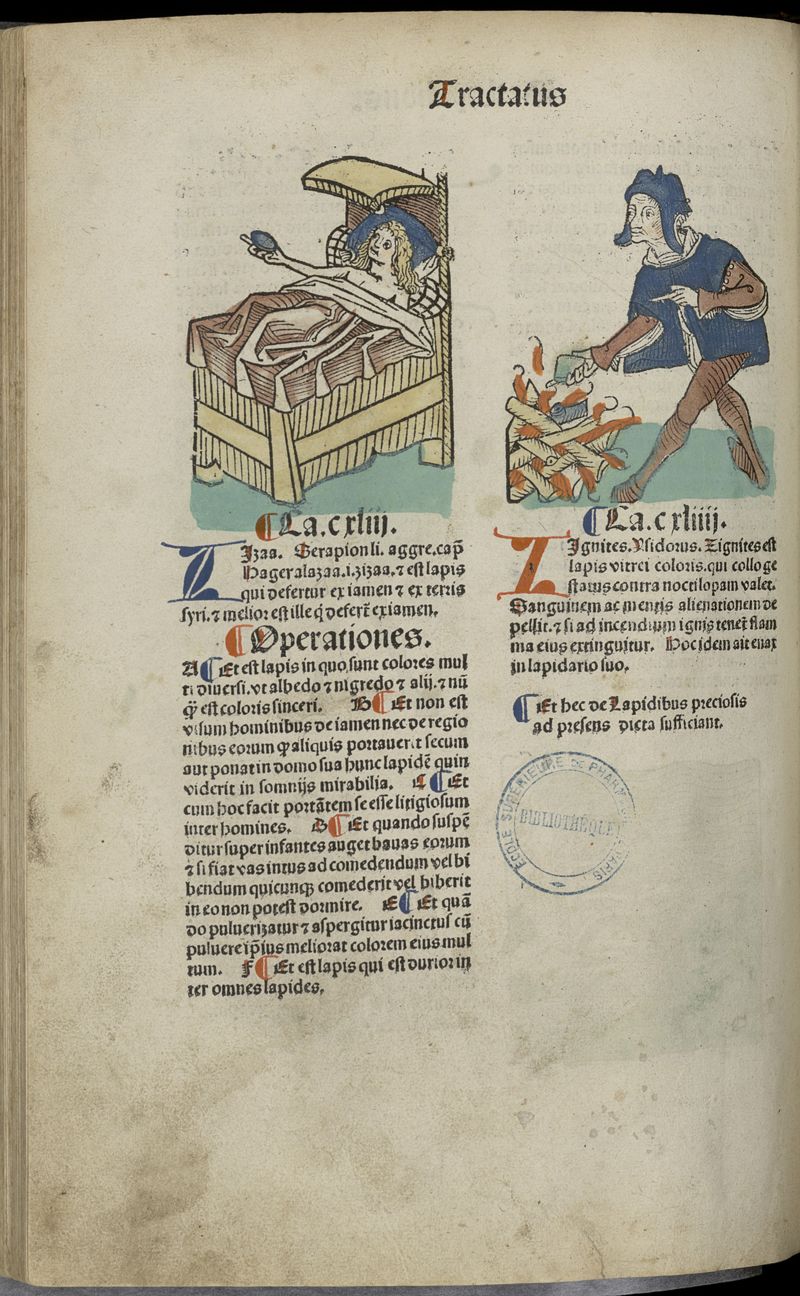 Tractatus
¶ Ca. cxliij.
Zizaa. Serapion li. aggre. cap̄
Hager alazaa .i. zizaa. ⁊ est lapis
qui defertur ex iamen ⁊ ex terris
syri. ⁊ melior est ille q̇ defert̄ ex iamen.
¶ Operationes.
A ¶ Et est lapis in quo sunt colores mul
ti diuersi. vt albedo ⁊ nigredo ⁊ alij. ⁊ nū
q̄ est coloris sinceri. B ¶ Et non est
visum hominibus de iamen nec de regio
nibus eorum ꝙ aliquis portauerit secum
aut ponat in domo sua hunc lapidē quin
viderit in somnijs mirabilia. C ¶ Et
cum hoc facit portātem se esse litigiosum
inter homines. D ¶ Et quando suspē
ditur super infantes auget bauas eorum
⁊ si fiat vas intus ad comedendum vel bi
bendum quicunqꝫ comederit vel biberit
in eo non potest dormire. E ¶ Et quā
do puluerizatur ⁊ aspergitur iacinctus cū
puluere ip̄ius meliorat colorem eius mul
tum. F ¶ Et est lapis qui est durior in
ter omnes lapides.
¶ Ca. cxliiij.
Zignites. Ysidorus. Zignites est
lapis vitrei coloris. qui collo ge
status contra noctilopam valet.
Sanguinem ac mentis alienationem de
pellit. ⁊ si ad incendium ignis tenet̄ flam
ma eius extinguitur. Hoc idem ait euax
in lapidario suo.
¶ Et hec de Lapidibus preciosis
ad presens dicta sufficiant.
ECOLE SUPERIEURE DE PHARMACIE PARIS
BIBLIOTHEQUE